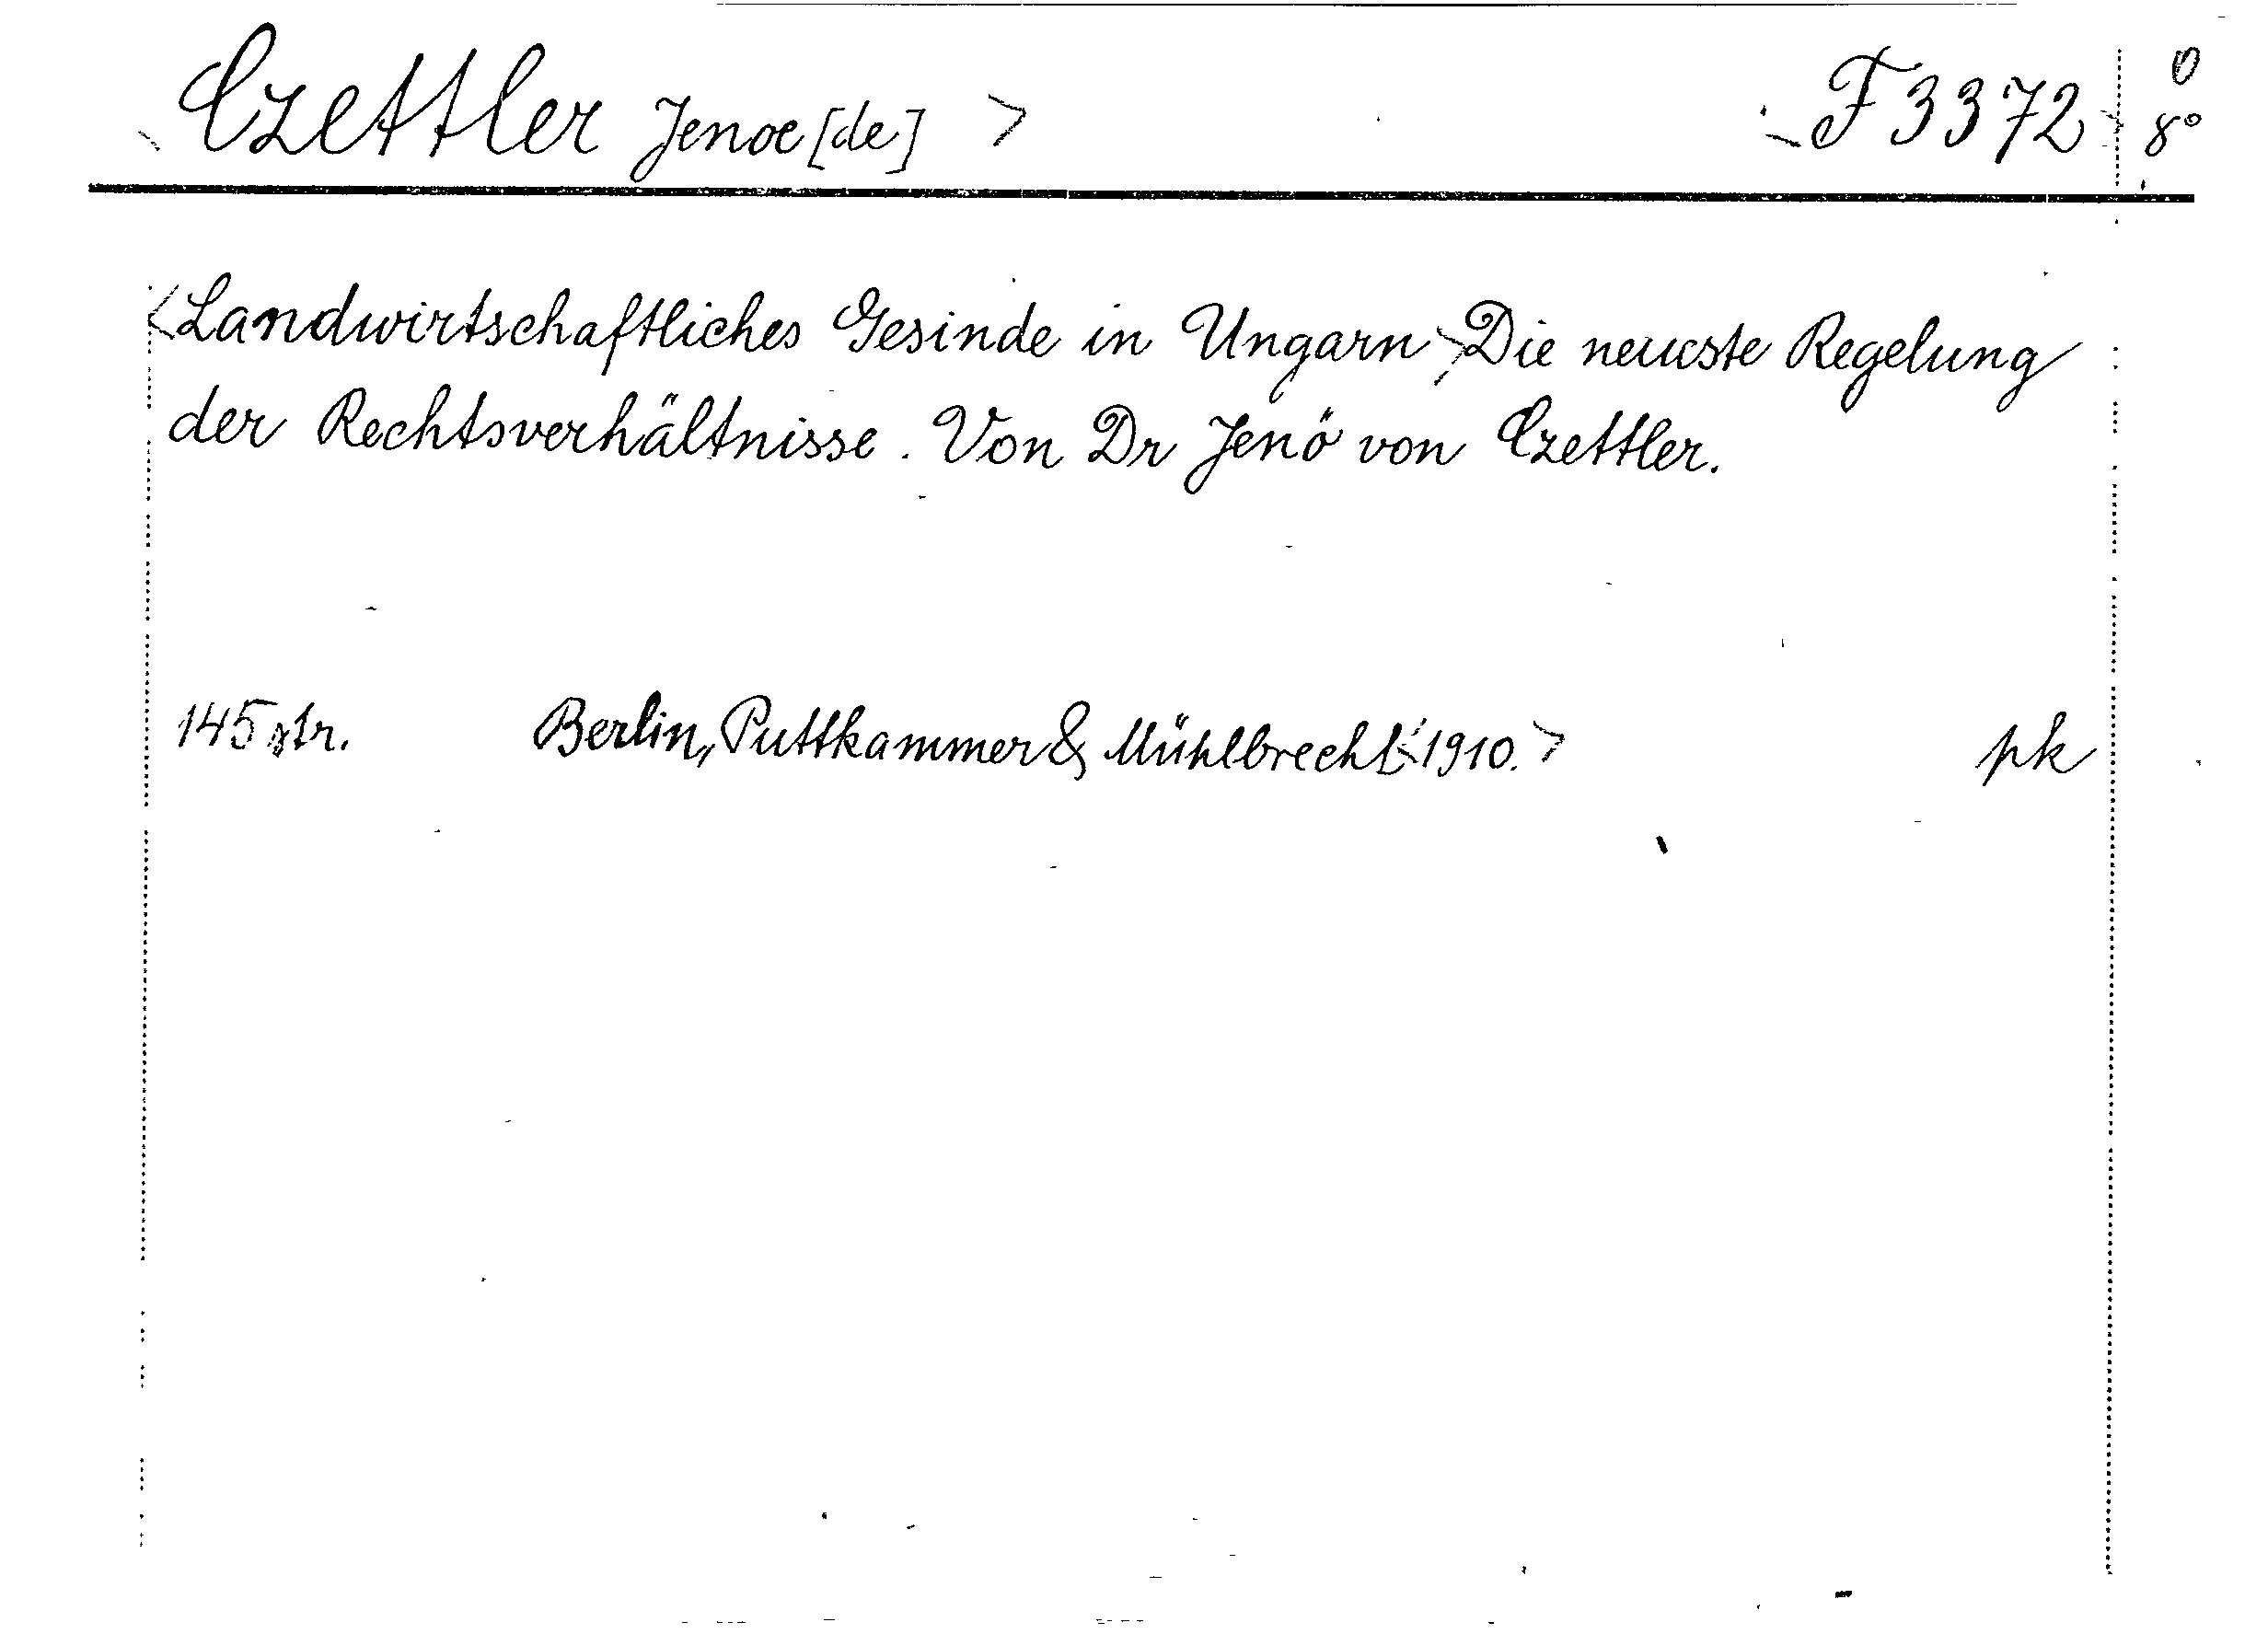 Czettler Jenoe [de] > F 3372 8°
<Landwirtschaftliches Gesinde in Ungarn> Die neueste Regelung
der Rechtsverhältnisse. Von Dr Jenö von Czettler.
145 str. Berlin, Puttkammer & Mühlbrecht <1910.> pk